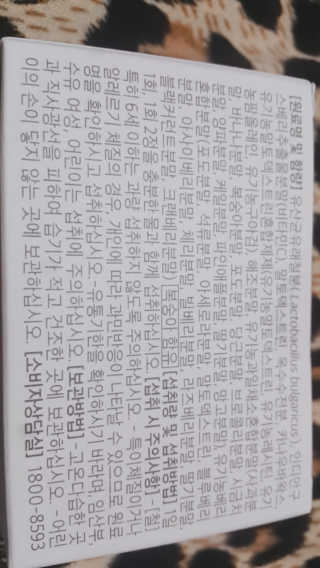 [원료명 및 함량] 유산균유래철분(Lactobacillus bulgaricus), 인디안구
스베리추출물분말(비타민C), 말토덱스트린, 옥수수전분, 카나우바왁스,
유기농말토덱스트린혼합제제(유기농말토덱스트린, 유기농레시틴, 유기
유기농구아검), 해조분말, 유기농과일채소혼합분말(사과분
말, 바나나분말, 복숭아분말, 포도분말, 당근분말, 브로콜리분말, 시금치
분말, 양파분말, 케일분말, 파인애플분말, 딸기분말, 망고분말), 유기농베리
혼합분말(포도분말, 석류분말, 아세로라분말, 말토덱스트린, 블루베리
분말, 아사이베리분말, 체리분말, 빌베리분말, 라즈베리분말, 딸기분말,
블랙커런트분말, 크랜베리분말) [복숭아 함유] [섭취량 및 섭취방법] 1일
1회, 1회 2정을 충분한 물과 함께 섭취하십시오. [섭취 시 주의사항] - (철)
특히 6세 이하는 과량 섭취하지 않도록 주의하십시오. - 특이체질이거나
알레르기 체질의 경우, 개인에 따라 과민반응이 나타날 수 있으므로 원료
명을 확인하시고 섭취하십시오. - 유통기한을 확인하시기 바라며, 임산부,
수유 여성, 어린이는 섭취에 주의하십시오. [보관방법] - 고온다습한 곳
과 직사광선을 피하여 습기가 적고 건조한 곳에 보관하십시오. - 어린
이의 손이 닿지 않는 곳에 보관하십시오. [소비자상담실] 1800-8593